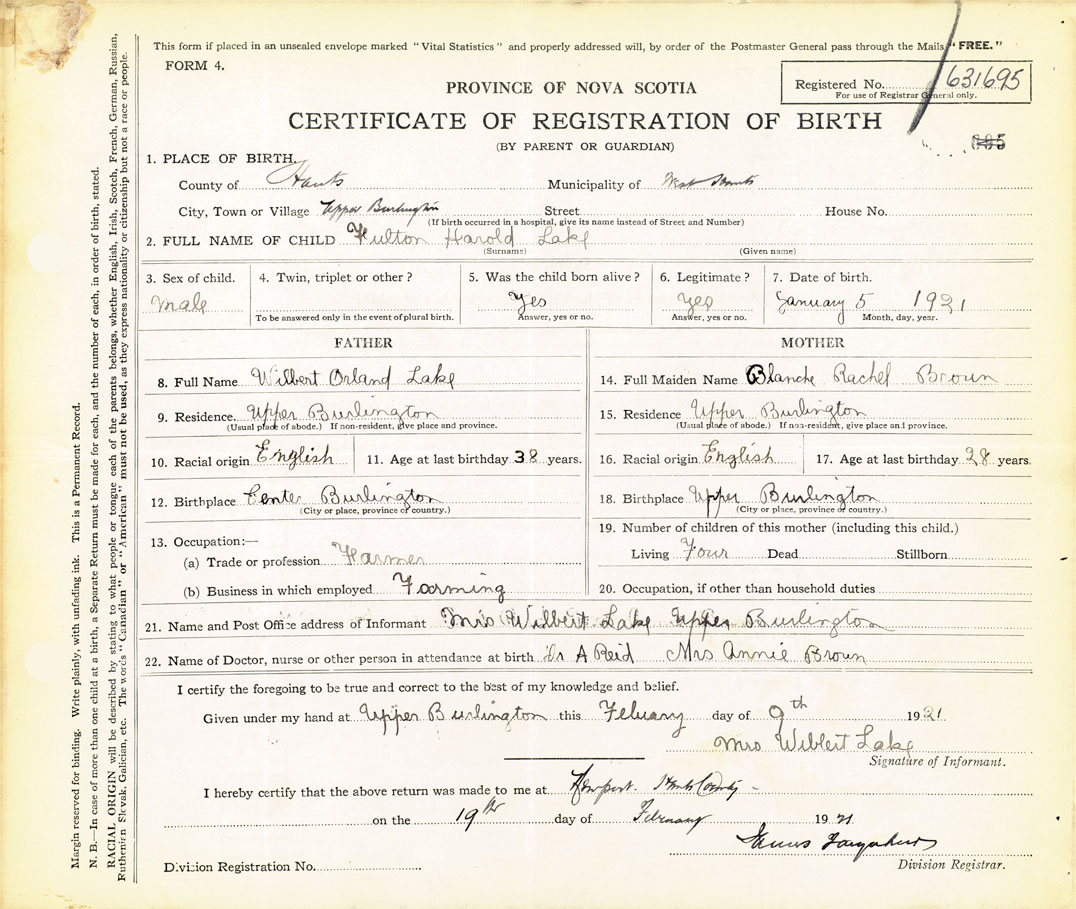 This form if placed in an unsealed envelope marked "Vital Statistics" and properly addressed will, by order of the Postmaster General pass through the Mails "FREE."
FORM 4.
Registered No. 631695
For use of Registrar General only.
PROVINCE OF NOVA SCOTIA
CERTIFICATE OF REGISTRATION OF BIRTH
(BY PARENT OR GUARDIAN)
1. PLACE OF BIRTH.
County of Hants Municipality of West Hants
City, Town or Village Upper Burlington Street House No.
(If birth occurred in a hospital, give its name instead of Street and Number)
2. FULL NAME OF CHILD Fulton Harold Lake
(Surname) (Given name)
3. Sex of child. 4. Twin, triplet or other? 5. Was the child born alive? 6. Legitimate? 7. Date of birth.
Male Yes Yes January 5 1921
To be answered only in the event of plural birth. Answer, yes or no. Answer, yes or no. Month, day, year.
FATHER MOTHER
8. Full Name Wilbert Orland Lake 14. Full Maiden Name Blanche Rachel Broun
9. Residence. Upper Burlington 15. Residence Upper Burlington
(Usual place of abode.) If non-resident, give place and province. (Usual place of abode.) If non-resident, give place and province.
10. Racial origin English 11. Age at last birthday 38 years. 16. Racial origin English 17. Age at last birthday 28 years.
12. Birthplace Center Burlington 18. Birthplace Upper Burlington
(City or place, province or country.) (City or place, province or country.)
19. Number of children of this mother (including this child.)
13. Occupation:—
Living Four Dead Stillborn
(a) Trade or profession Farmer
(b) Business in which employed Farming 20. Occupation, if other than household duties
21. Name and Post Office address of Informant Mrs Wilbert Lake Upper Burlington
22. Name of Doctor, nurse or other person in attendance at birth Dr A Reid Mrs Annie Broun
I certify the foregoing to be true and correct to the best of my knowledge and belief.
Given under my hand at Upper Burlington this Febuary day of 9th 1921.
Mrs Wilbert Lake
Signature of Informant.
I hereby certify that the above return was made to me at Newport. Hants County
on the 19th day of February 1921
James
Division Registrar.
Division Registration No.
Margin reserved for binding. Write plainly, with unfading ink. This is a Permanent Record.
N. B.—In case of more than one child at a birth, a Separate Return must be made for each, and the number of each, in order of birth, stated.
RACIAL ORIGIN will be described by stating to what people or tongue each of the parents belongs, whether English, Irish, Scotch, French, German, Russian,
Ruthenian Slovak, Galician, etc. The words "Canadian" or "American" must not be used, as they express nationality or citizenship but not a race or people.